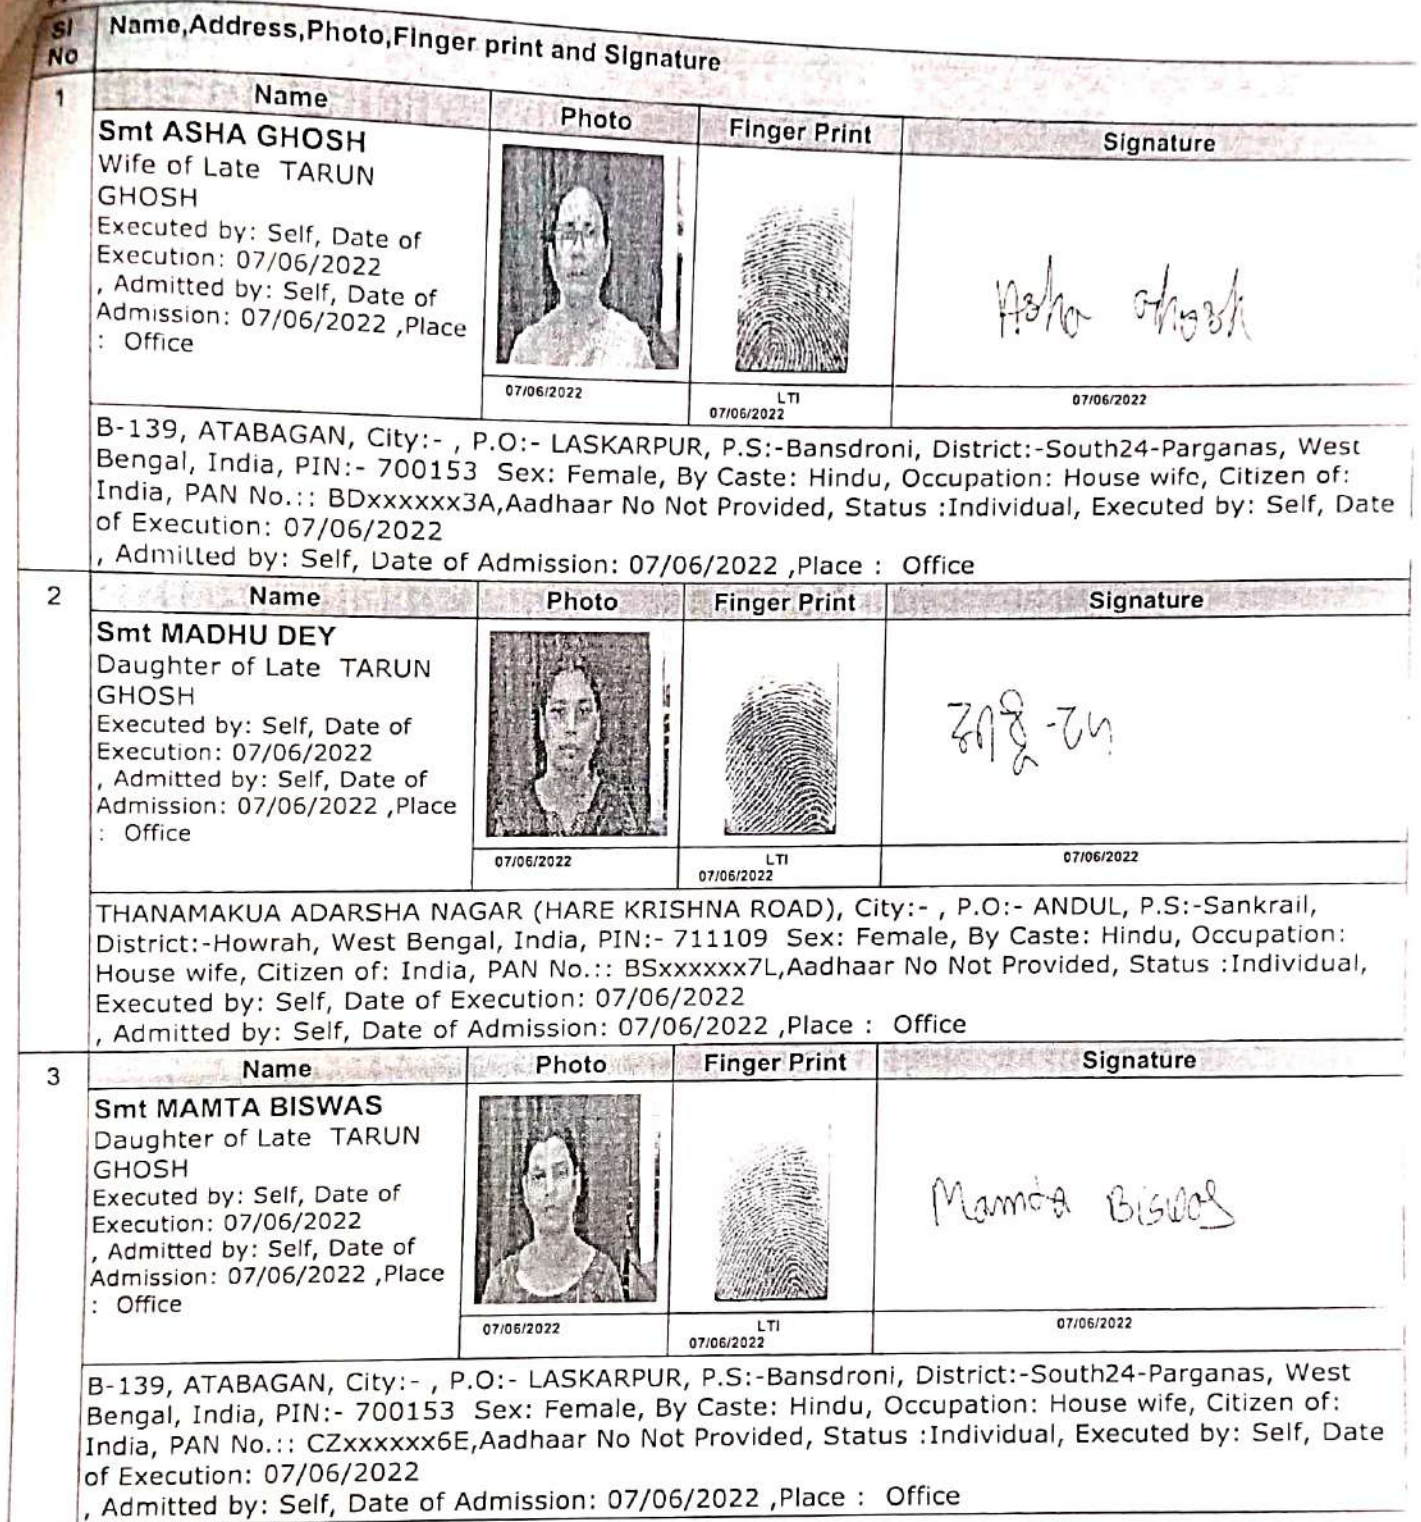 Sl No
Name,Address,Photo,Finger print and Signature
1
Name
Photo
Finger Print
Signature
Smt ASHA GHOSH
Wife of Late TARUN
GHOSH
Executed by: Self, Date of
Execution: 07/06/2022
, Admitted by: Self, Date of
Admission: 07/06/2022 ,Place
: Office
Asha Ghosh
07/06/2022
LTI
07/06/2022
07/06/2022
B-139, ATABAGAN, City:- , P.O:- LASKARPUR, P.S:-Bansdroni, District:-South24-Parganas, West
Bengal, India, PIN:- 700153 Sex: Female, By Caste: Hindu, Occupation: House wife, Citizen of:
India, PAN No.:: BDxxxxxx3A,Aadhaar No Not Provided, Status :Individual, Executed by: Self, Date
of Execution: 07/06/2022
, Admitted by: Self, Date of Admission: 07/06/2022 ,Place : Office
2
Name
Photo
Finger Print
Signature
Smt MADHU DEY
Daughter of Late TARUN
GHOSH
Executed by: Self, Date of
Execution: 07/06/2022
, Admitted by: Self, Date of
Admission: 07/06/2022 ,Place
: Office
মাধু দে
07/06/2022
LTI
07/06/2022
07/06/2022
THANAMAKUA ADARSHA NAGAR (HARE KRISHNA ROAD), City:- , P.O:- ANDUL, P.S:-Sankrail,
District:-Howrah, West Bengal, India, PIN:- 711109 Sex: Female, By Caste: Hindu, Occupation:
House wife, Citizen of: India, PAN No.:: BSxxxxxx7L,Aadhaar No Not Provided, Status :Individual,
Executed by: Self, Date of Execution: 07/06/2022
, Admitted by: Self, Date of Admission: 07/06/2022 ,Place : Office
3
Name
Photo
Finger Print
Signature
Smt MAMTA BISWAS
Daughter of Late TARUN
GHOSH
Executed by: Self, Date of
Execution: 07/06/2022
, Admitted by: Self, Date of
Admission: 07/06/2022 ,Place
: Office
Mamta Biswas
07/06/2022
LTI
07/06/2022
07/06/2022
B-139, ATABAGAN, City:- , P.O:- LASKARPUR, P.S:-Bansdroni, District:-South24-Parganas, West
Bengal, India, PIN:- 700153 Sex: Female, By Caste: Hindu, Occupation: House wife, Citizen of:
India, PAN No.:: CZxxxxxx6E,Aadhaar No Not Provided, Status :Individual, Executed by: Self, Date
of Execution: 07/06/2022
, Admitted by: Self, Date of Admission: 07/06/2022 ,Place : Office